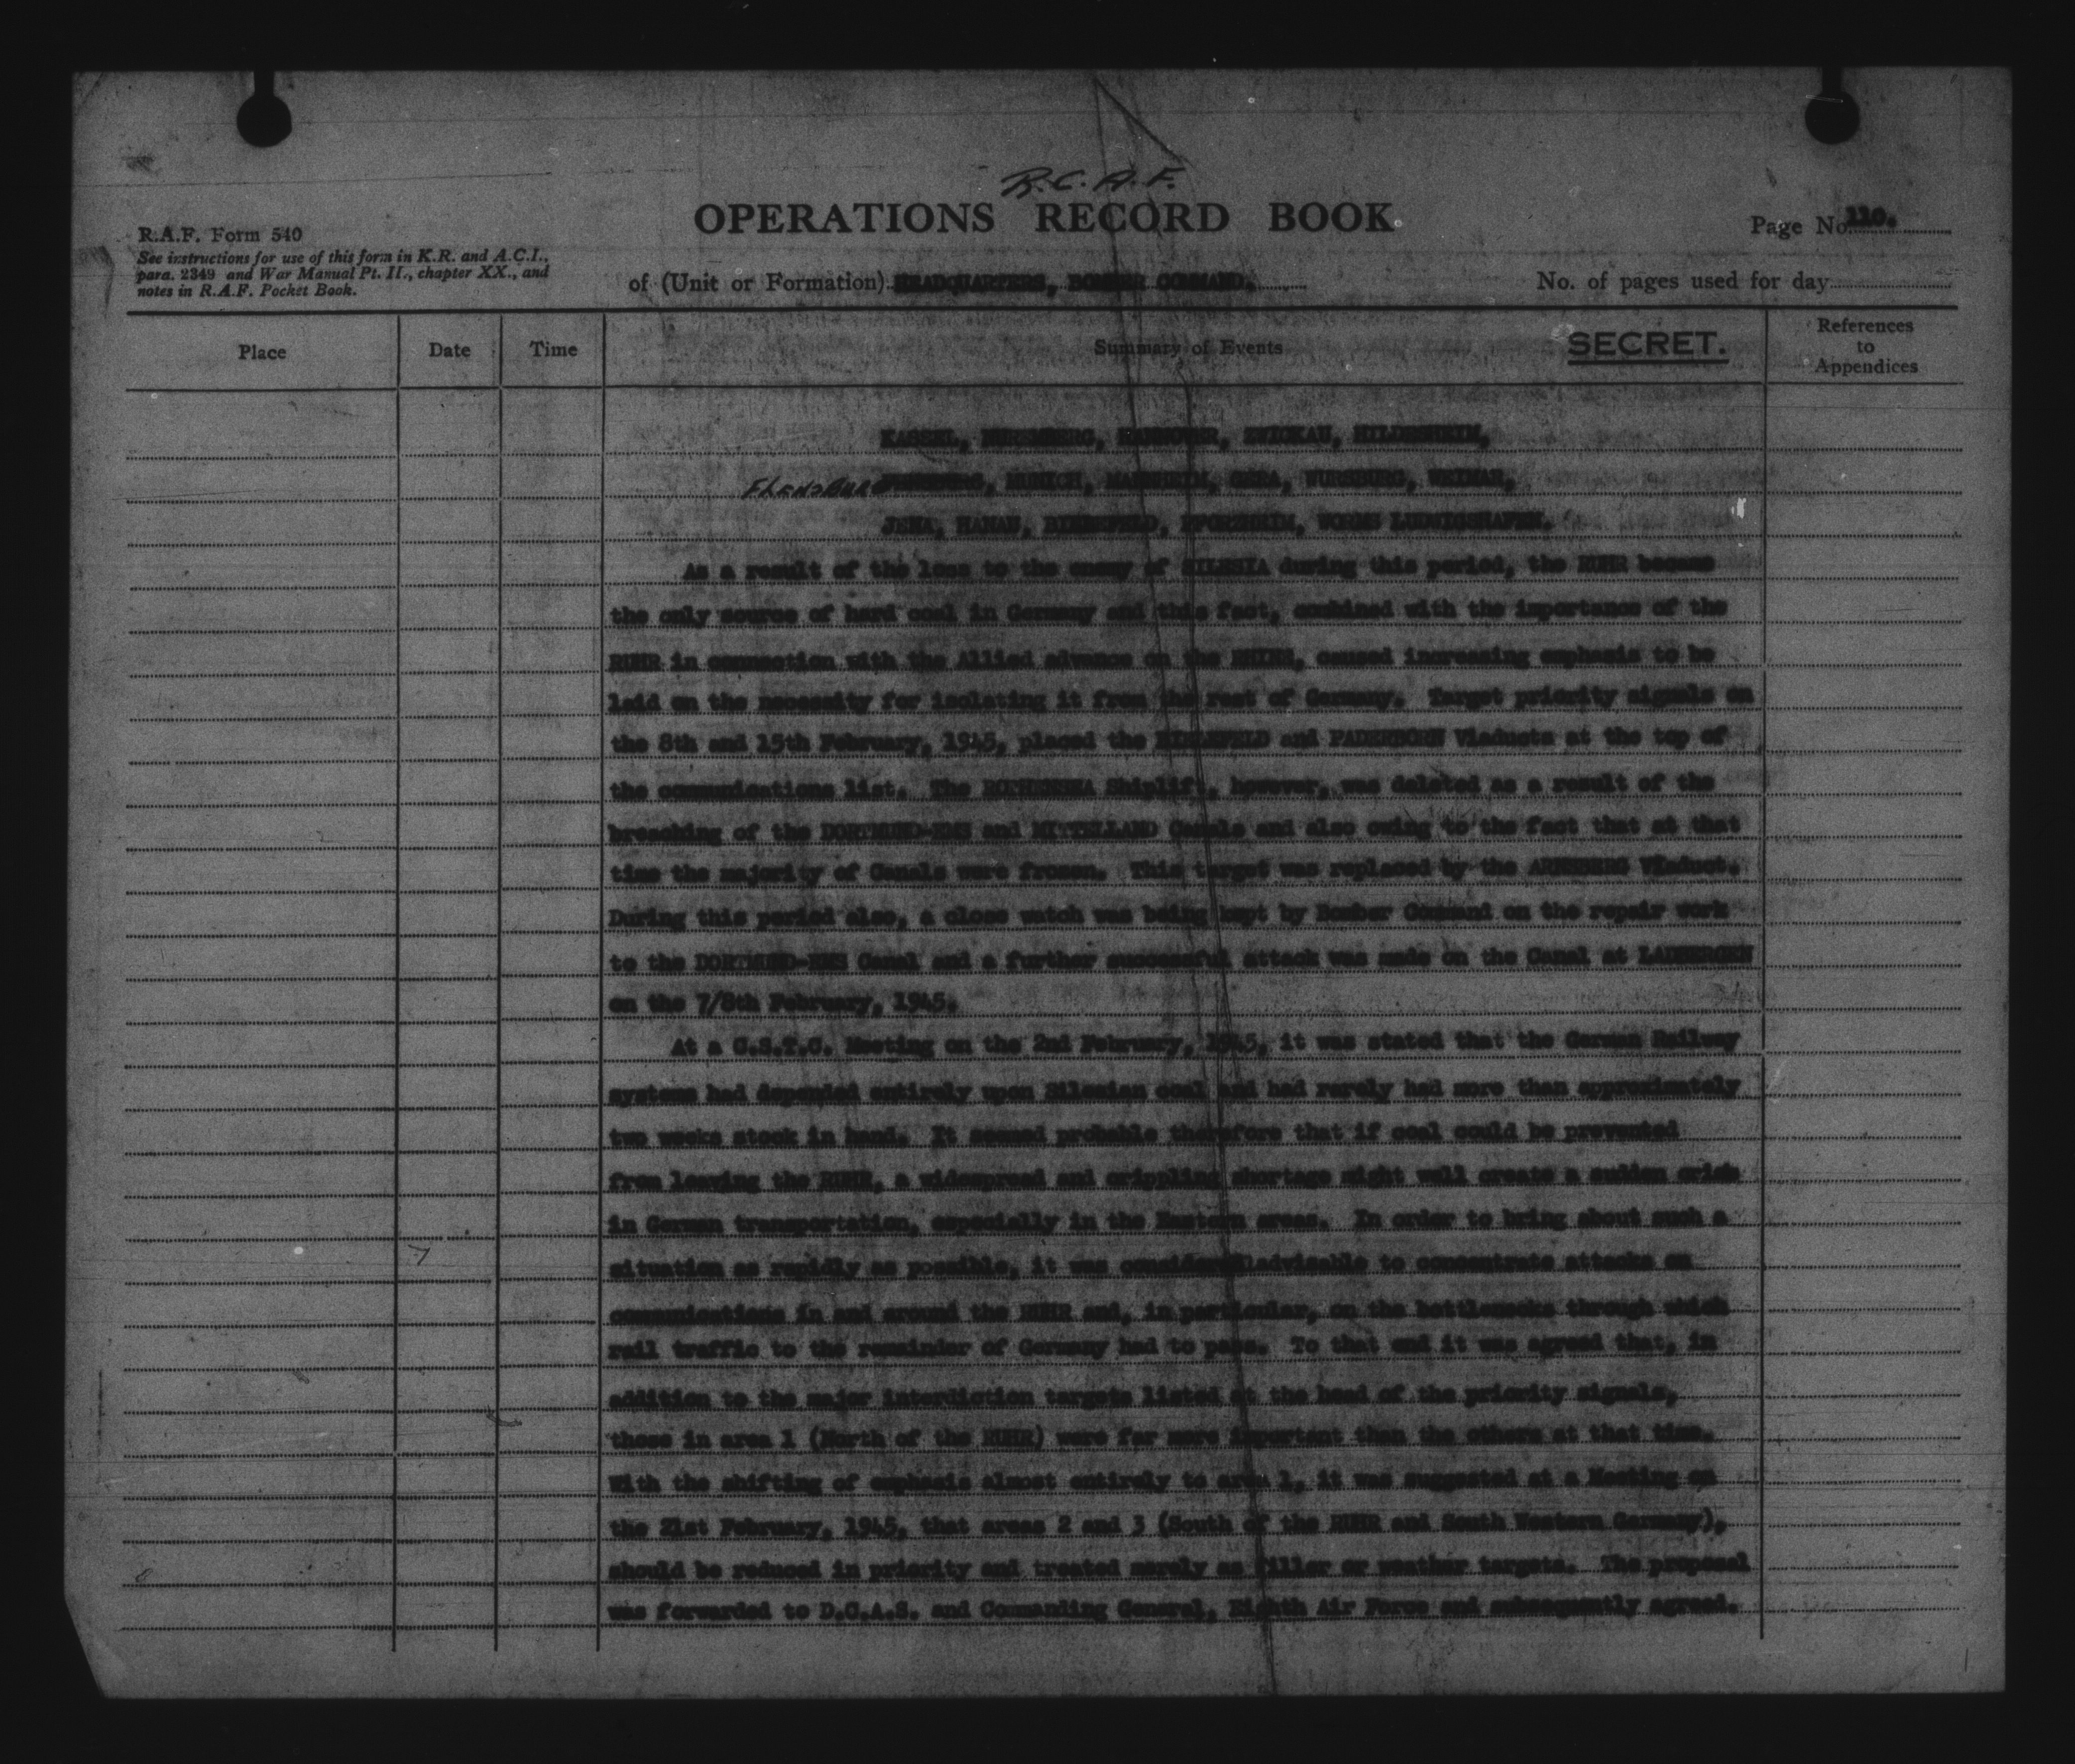 R.C.A.F.
OPERATIONS RECORD BOOK.
Page No. 110.
R.A.F. Form 540
See instructions for use of this form in K.R. and A.C.I.,
para. 2349 and War Manual Pt. II., chapter XX., and
notes in R.A.F. Pocket Book.
of (Unit or Formation) HEADQUARTERS, BOMBER COMMAND.
No. of pages used for day
Place
Date
Time
Summary of Events
SECRET.
References
to
Appendices
KASSEL, NUREMBERG, HANNOVER, ZWICKAU, HILDESHEIM,
FLENSBURG, MUNICH, MANNHEIM, GERA, WURSBURG, WEIMAR,
JENA, HANAU, BIELEFELD, PFORZHEIM, WORMS LUDWIGSHAFEN.
As a result of the loss to the enemy of SILESIA during this period, the RUHR became
the only source of hard coal in Germany and this fact, combined with the importance of the
RUHR in connection with the Allied advance on the RHINE, caused increasing emphasis to be
laid on the necessity for isolating it from the rest of Germany. Target priority signals on
the 8th and 15th February, 1945, placed the BIELEFELD and PADERBORN Viaducts at the top of
the communications list. The ROTHENSEA Shiplift, however, was deleted as a result of the
breaching of the DORTMUND-EMS and MITTELLAND Canals and also owing to the fact that at that
time the majority of Canals were frozen. This target was replaced by the ARNSBERG Viaduct.
During this period also, a close watch was being kept by Bomber Command on the repair work
to the DORTMUND-EMS Canal and a further successful attack was made on the Canal at LADBERGEN
on the 7/8th February, 1945.
At a C.S.T.C. Meeting on the 2nd February, 1945, it was stated that the German Railway
systems had depended entirely upon Silesian coal and had rarely had more than approximately
two weeks stock in hand. It seemed probable therefore that if coal could be prevented
from leaving the RUHR, a widespread and crippling shortage might well create a sudden crisis
in German transportation, especially in the Eastern areas. In order to bring about such a
situation as rapidly as possible, it was considered advisable to concentrate attacks on
communications in and around the RUHR and, in particular, on the bottlenecks through which
rail traffic to the remainder of Germany had to pass. To that end it was agreed that, in
addition to the major interdiction targets listed at the head of the priority signals,
those in area 1 (North of the RUHR) were far more important than the others at that time.
With the shifting of emphasis almost entirely to area 1, it was suggested at a Meeting on
the 21st February, 1945, that areas 2 and 3 (South of the RUHR and South Western Germany),
should be reduced in priority and treated merely as filler or weather targets. The proposal
was forwarded to D.C.A.S. and Commanding General, Eighth Air Force and subsequently agreed.